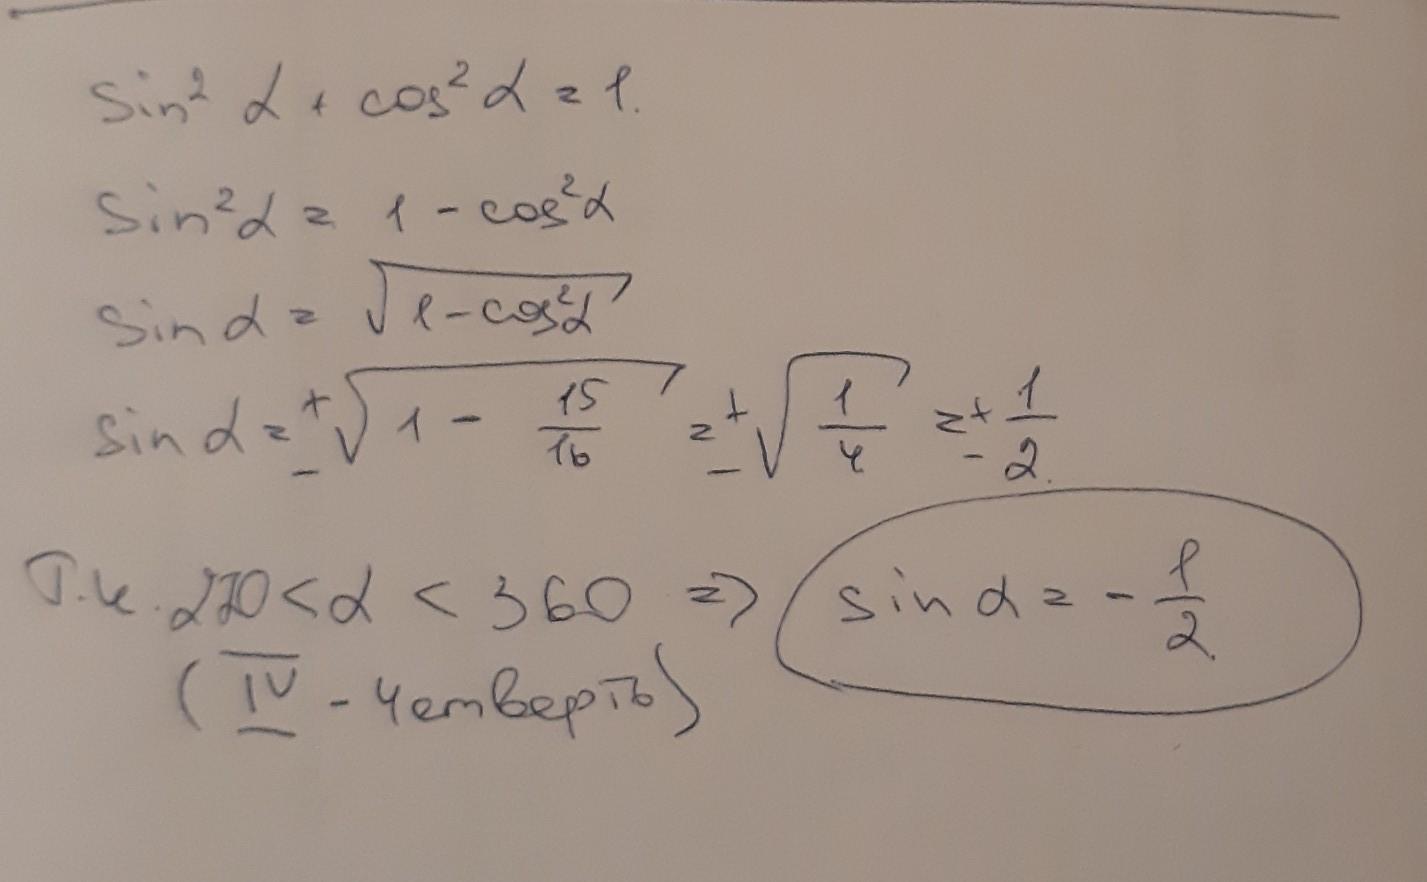 sin² α + cos² α = 1.
sin² α = 1 - cos² α
sin α = √(1 - cos² α)
sin α = ±√(1 - 15/16) = ±√(1/4) = ± 1/2.
Т.к. 270 < α < 360 => sin α = - 1/2.
(IV - четверть)